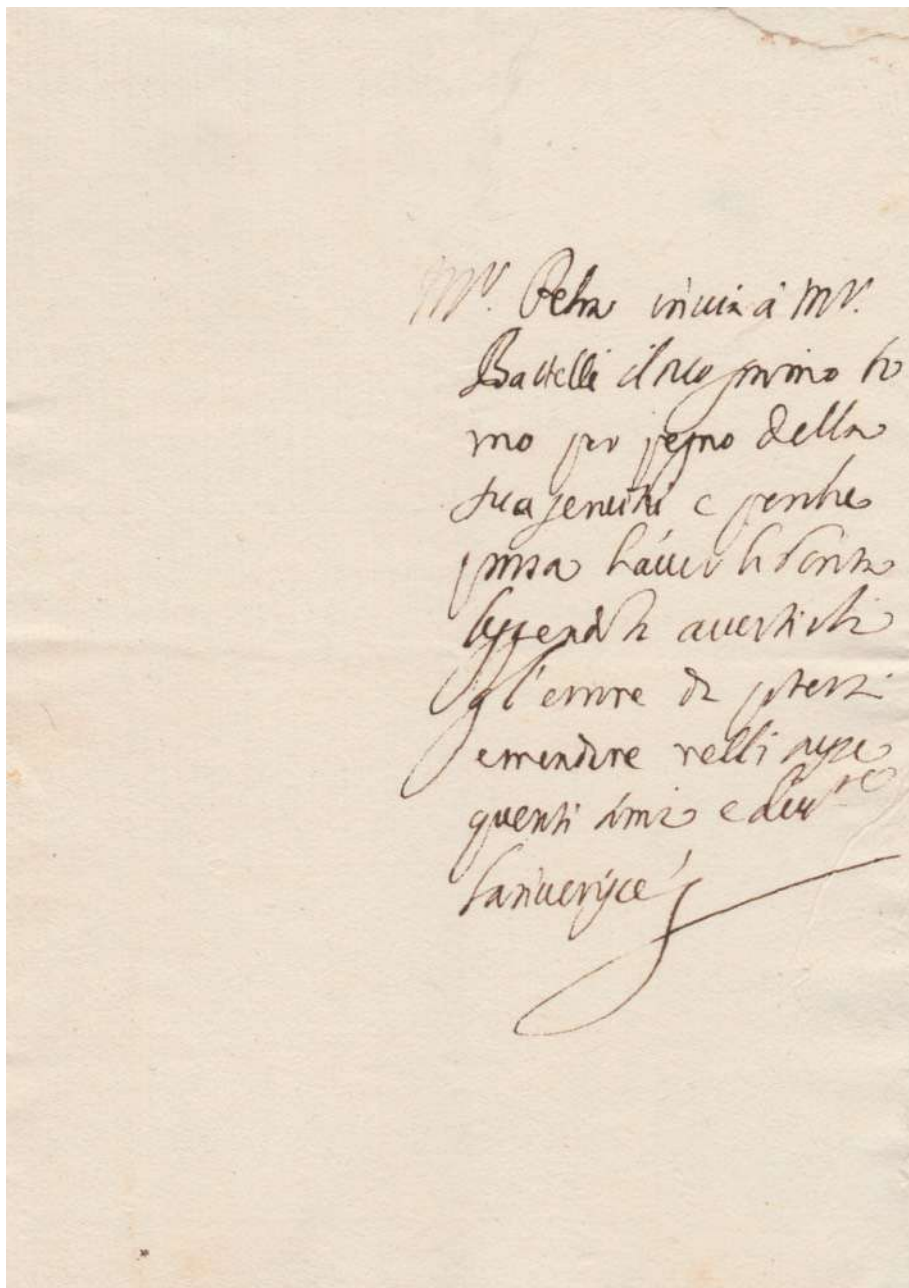 Mr. Petra inuia à Mr.
Battelli il suo primo to
mo per pegno della
sua seruitù e perche
possa hauer la bontà
leggendolo auertirli
gl'errore da potersi
emendare nelli susse
quenti tomi e diute
lariuerisce